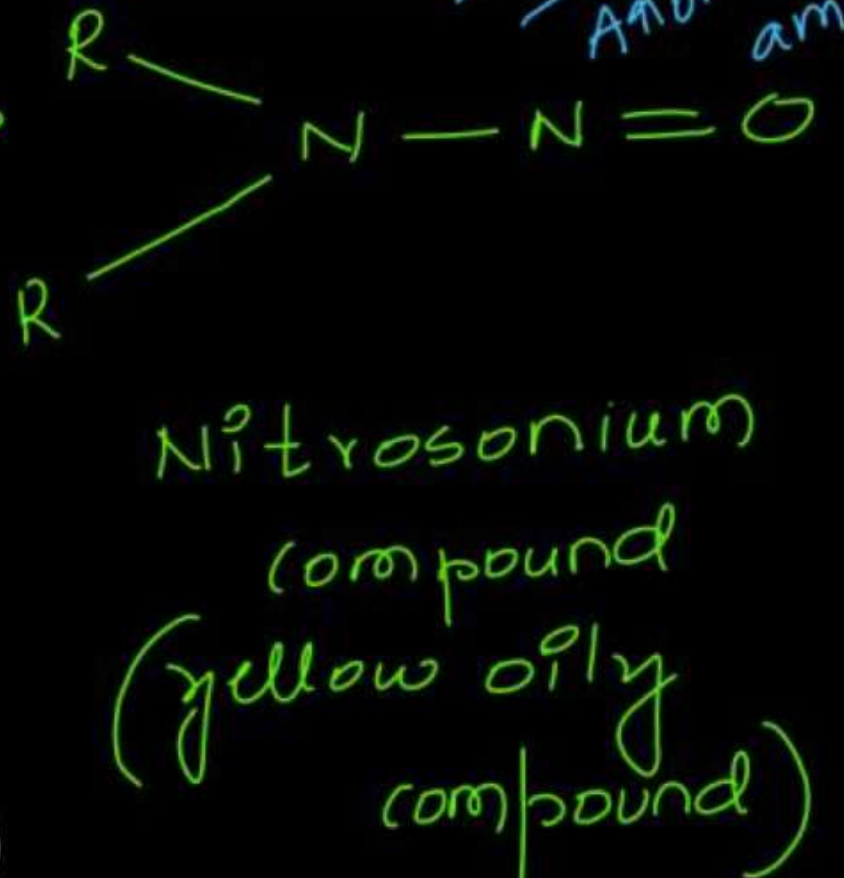 R
N — N = O
R
Nitrosonium
compound
(yellow oily
compound)